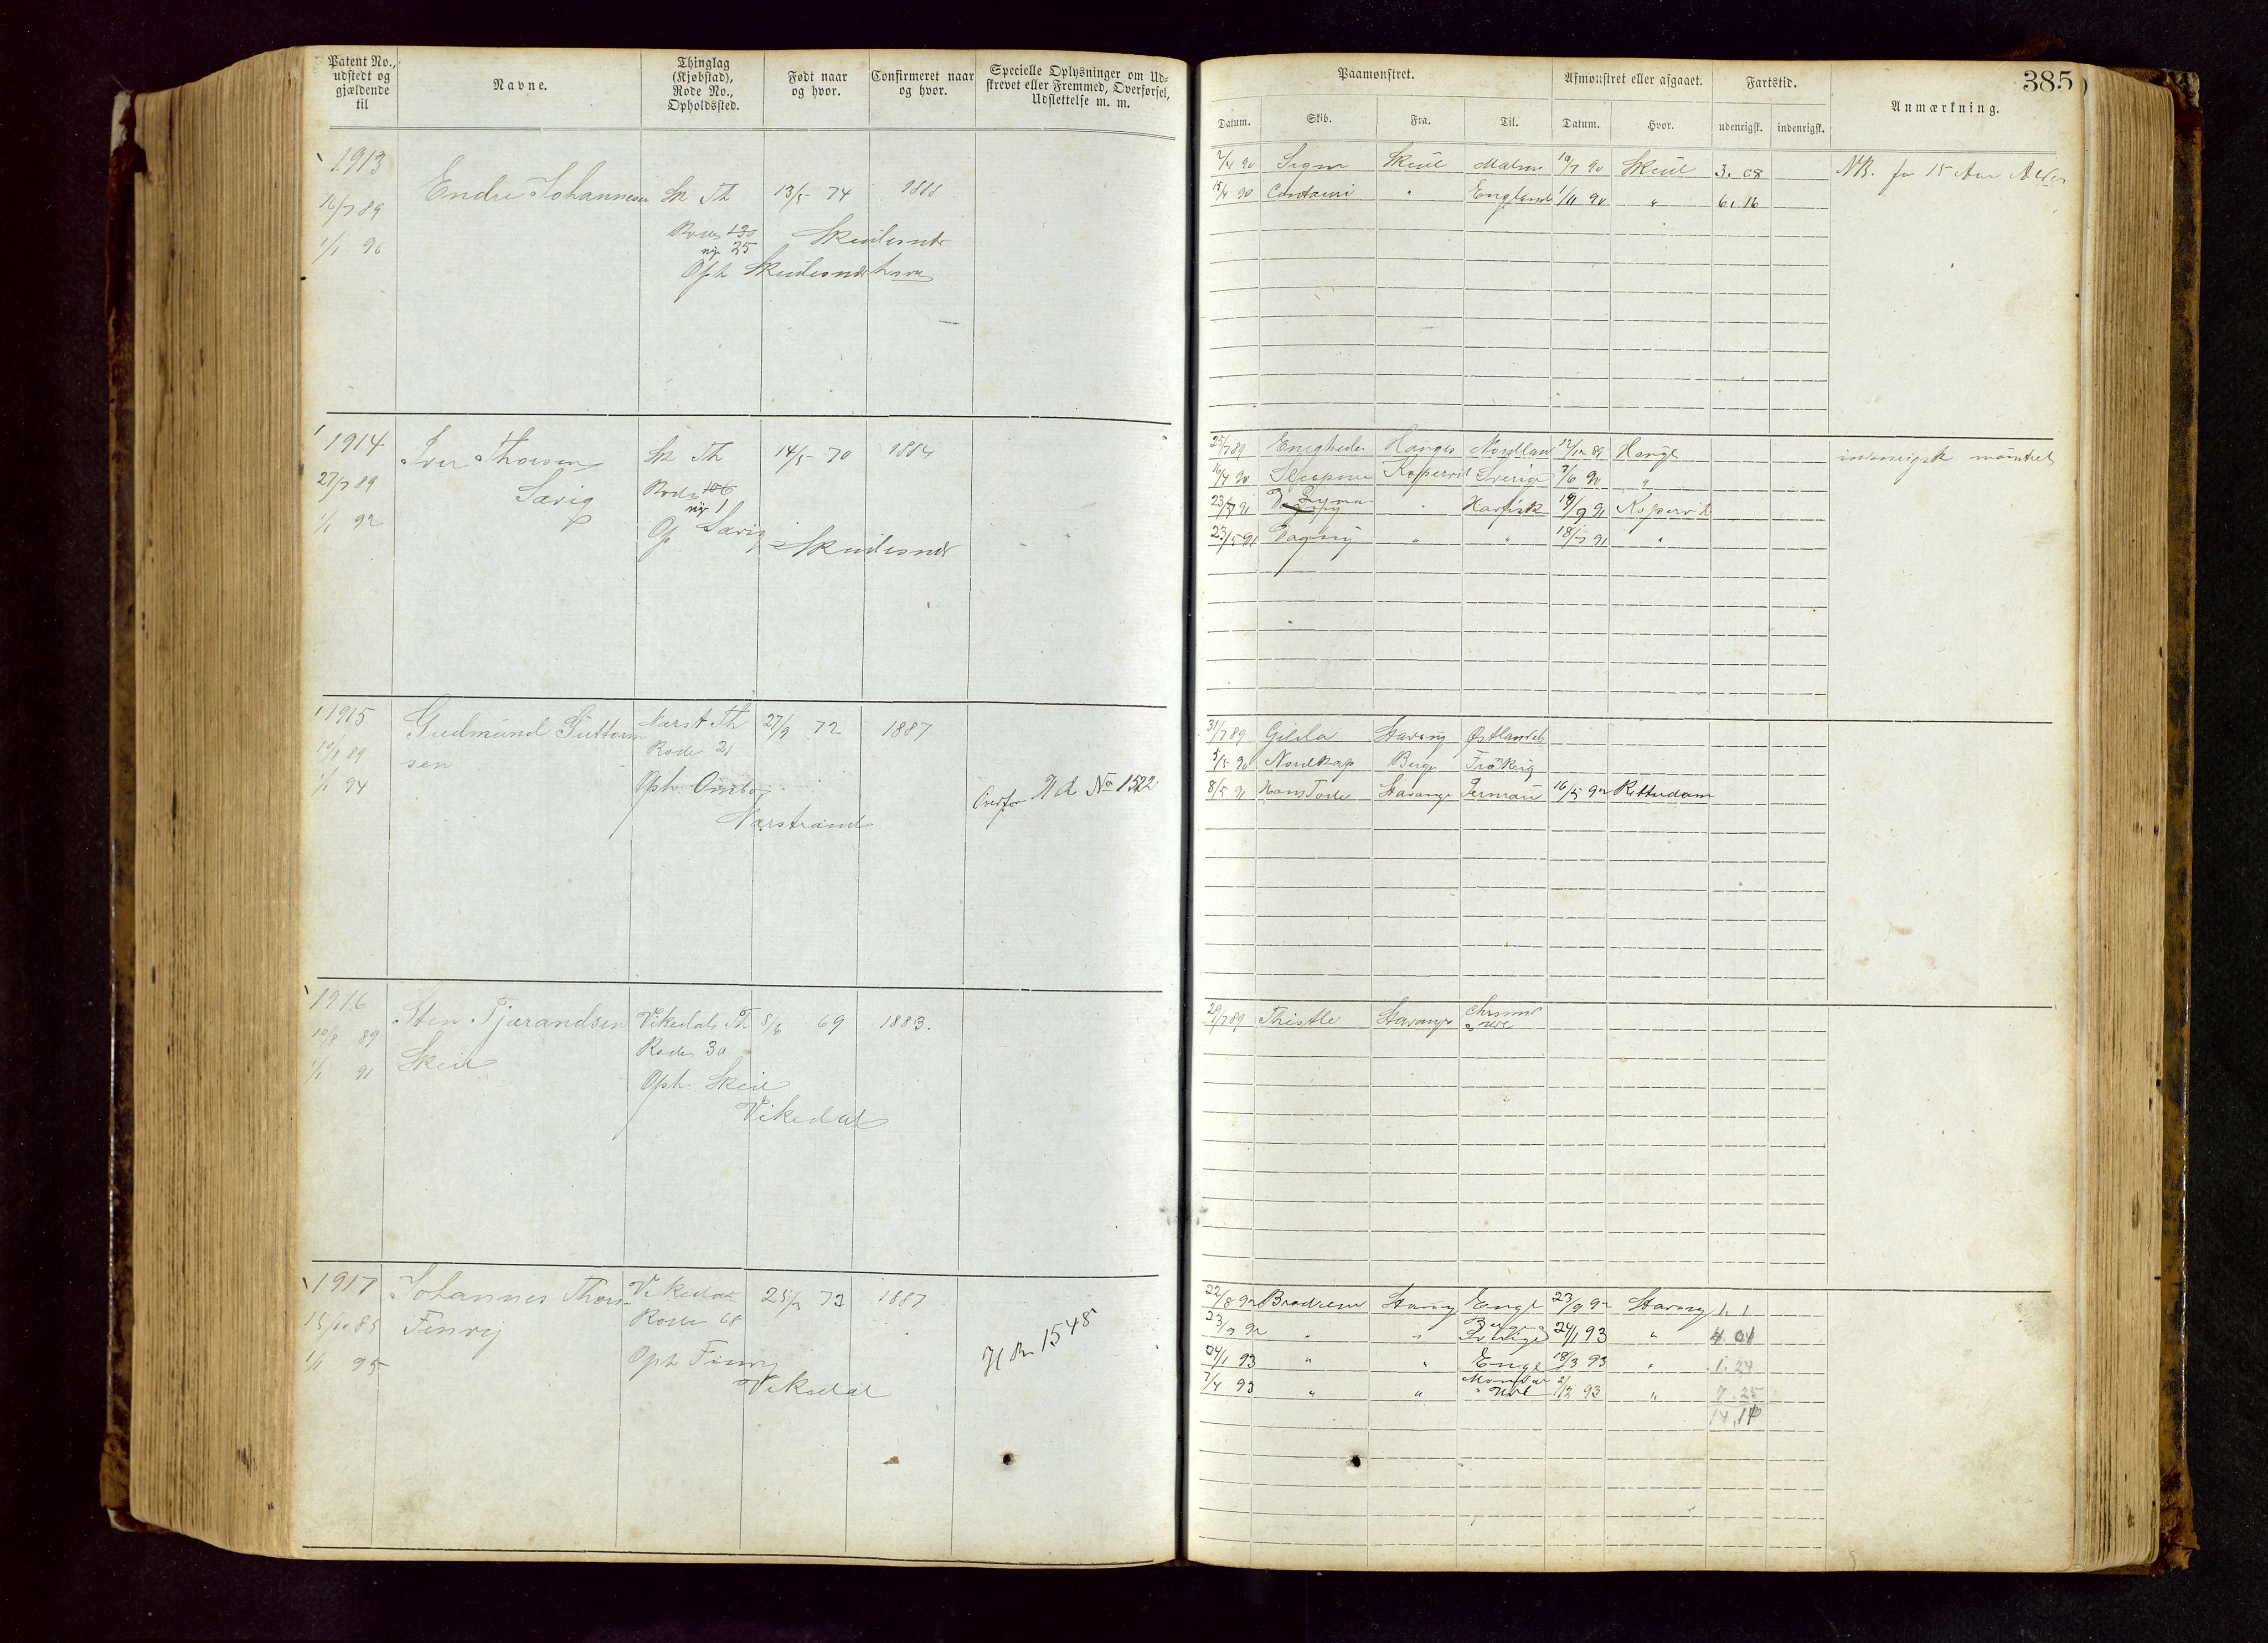 385
Patent No., udstedt og gjældende til
Navne.
Thinglag (Kjøbstad), Rode No., Opholdssted.
Født naar og hvor.
Confirmeret naar og hvor.
Specielle Oplysninger om Udskrevet eller Fremmed, Overførsel, Udslettelse m. m.
Paamønstret.
Afmønstret eller afgaaet.
Fartstid.
Anmærkning.
Datum. Skib. Fra. Til. Datum. Hvor. udenrigsk. indenrigsk.
1913 Endre Johannesen Sk Th 13/5 74 1888
16/7 89
Rode 130
ny 25
Skudesnes
1/1 96
Oph Skudesneshavn
2/4 90 Skud Malmø 10/7 90 Skud 3. 08 NB. før 15 Aar
15/7 90 " England 1/11 90 " 6, 16
1914 Iver Thorsen Sk Th 14/5 70 1884
27/7 89 Sævig Rode 106
ny 1
1/1 92 Op Sævig Skudesnes
25/7 89 Nordland 17/12 89 Haug indenrigsk mønstret
16/4 90 Kopervik Sverige 7/6 90 "
23/7 91 Syra " Havfisk 19/9 91 Kopervik
23/5 91 Dagny " " 18/7 91 "
1915 Gudmund Guttorm Narst Th 27/9 72 1887
10/8 89 sen Rode 21
1/1 94 Oph Ombo
Overfør Hd No 1522
Narstrand
31/7 89 Gilda Stavang Østlandet
5/5 90 Nordkap Berge
8/5 91 Hans Tode Stavange 16/5 92 Rotterdam
1916 Sten Tjerandsen Vikedals Th 8/6 69 1883.
10/8 89 Skeie Rode 30
1/1 91 Oph. Skeie
Vikedal
29/7 89 Thistle Stavange
1917 Johannes Thors Vikedal 73 1887
Rode 68
1/1 95 Oph
Vikedal
H No 1548
22/8 92 Brødrene Stavng Engl 23/9 92 Stavang 1, 1
23/9 92 " " Sverige 24/1 93 " 4. 01
24/1 93 " " Engl 18/3 93 " 1. 24
7/4 93 " " 2/12 93 " 7. 25